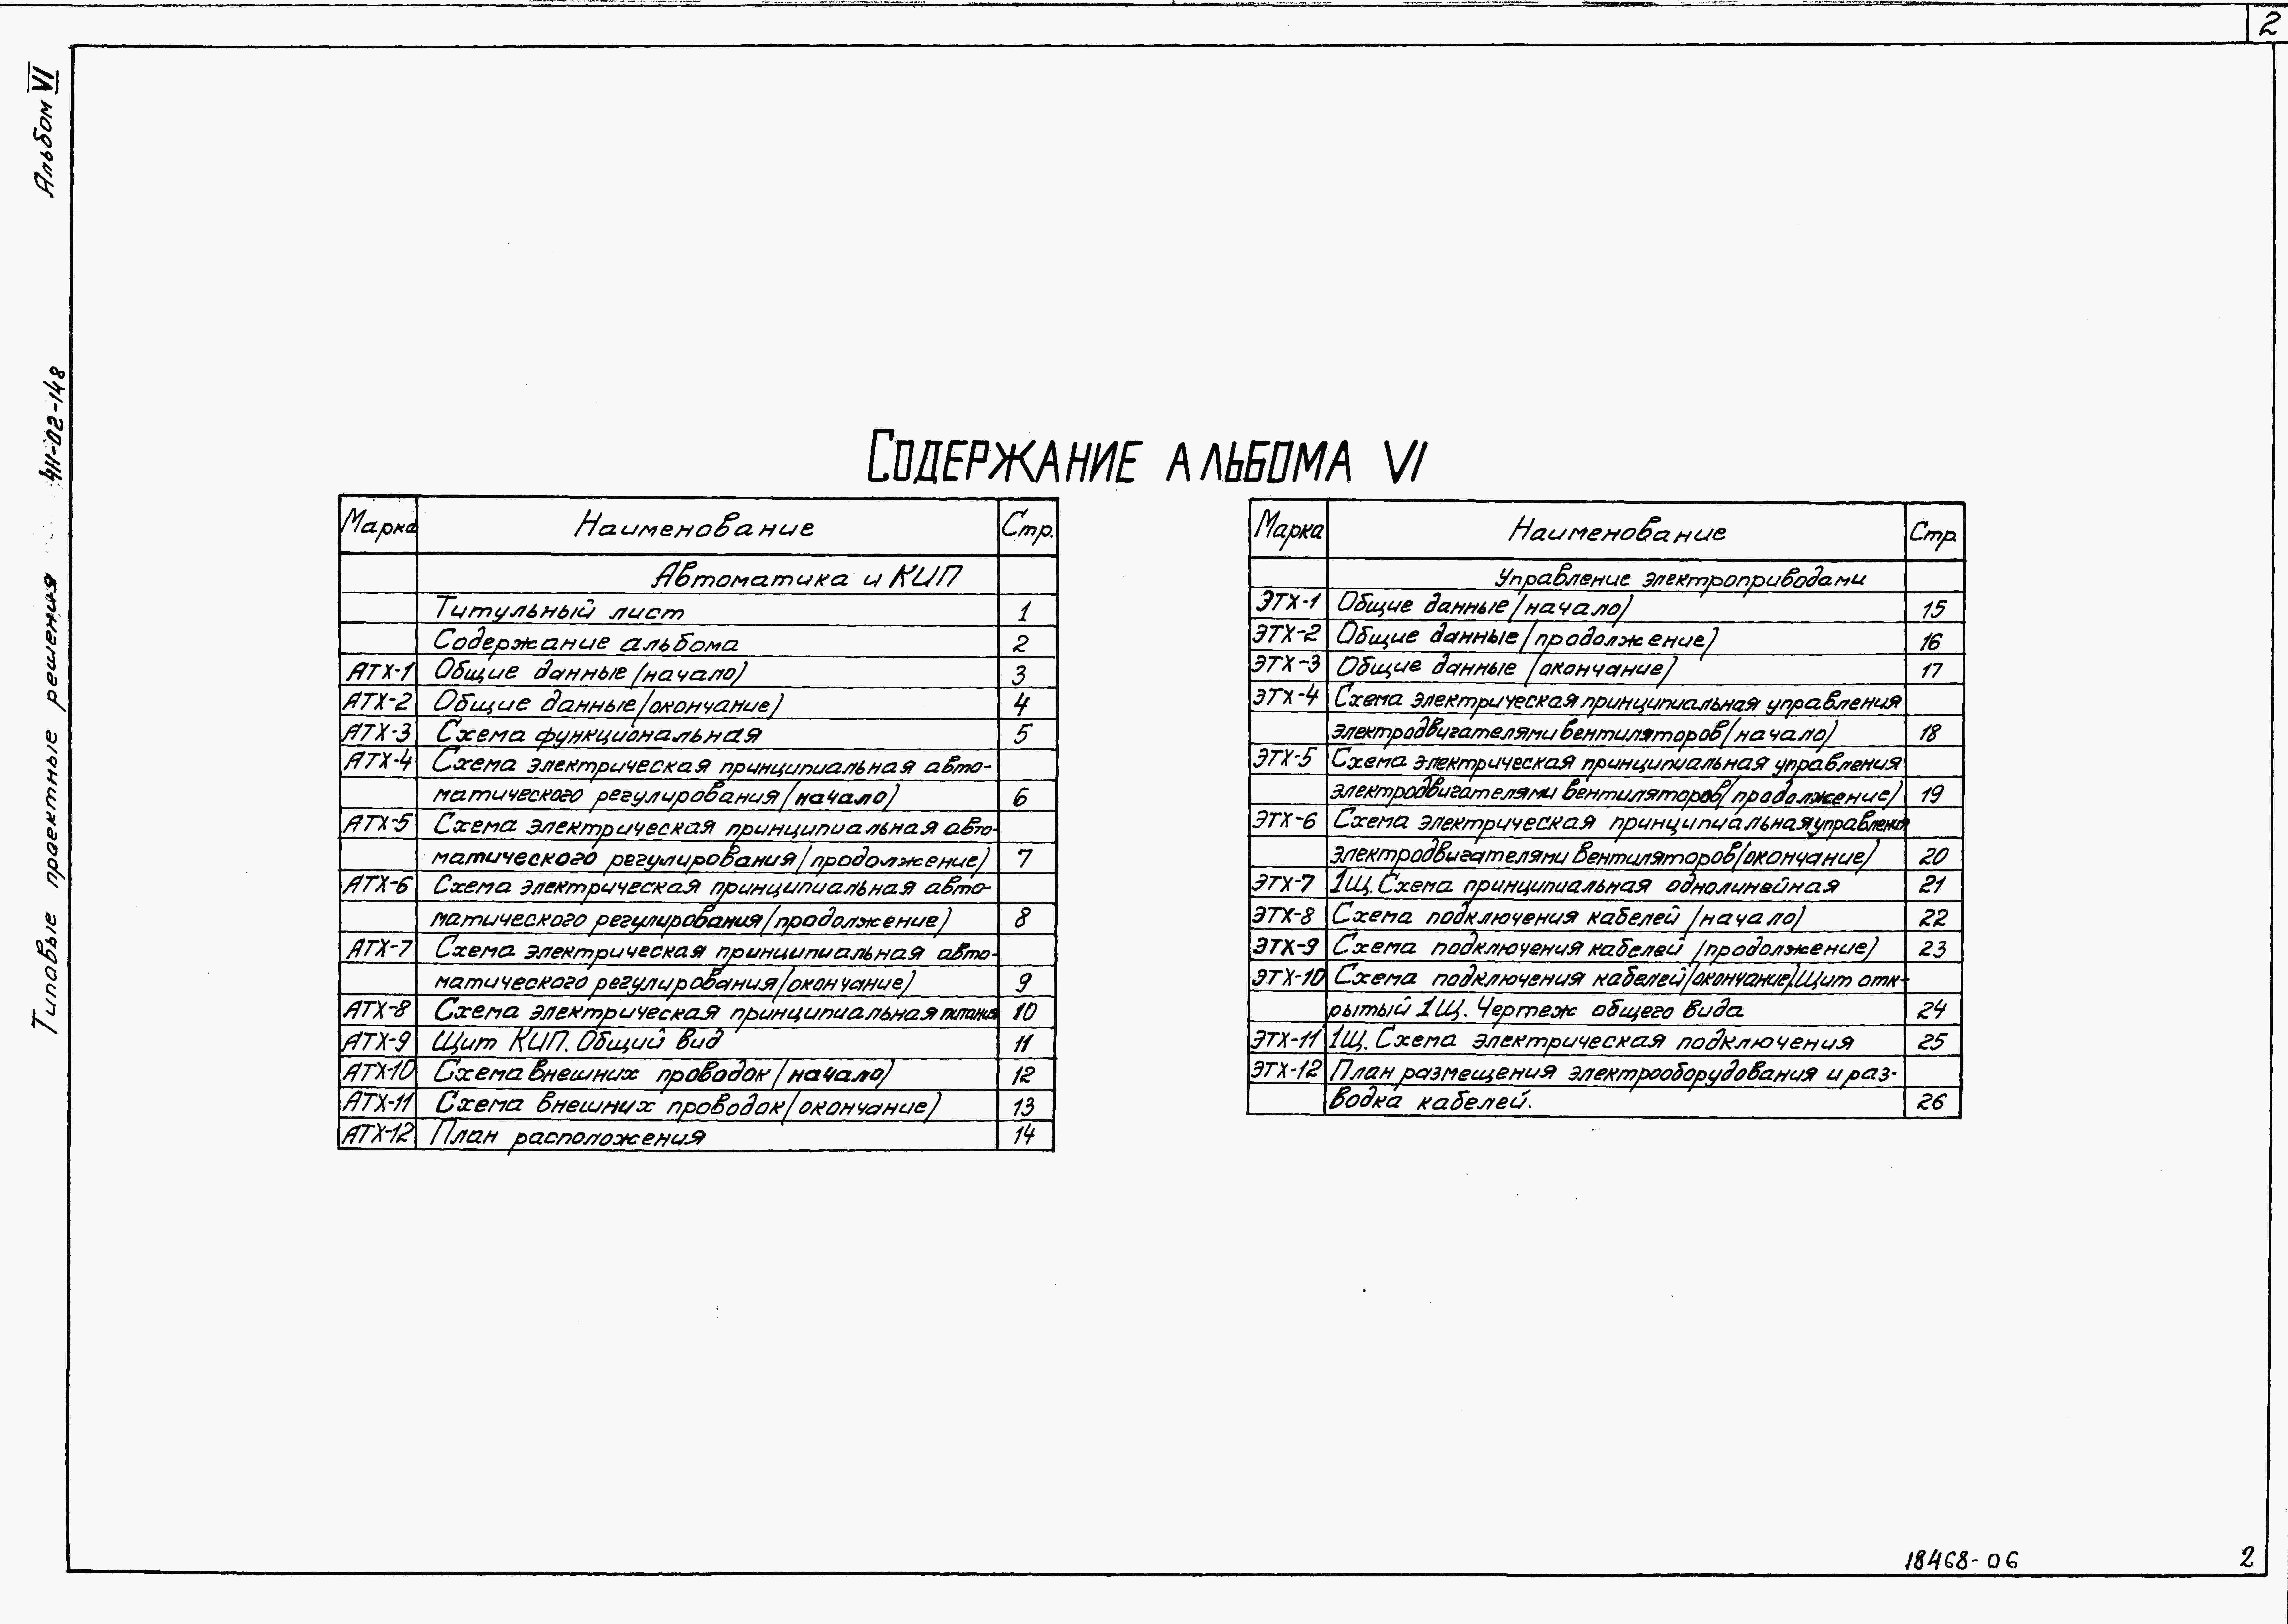 2
Альбом VI
Типовые проектные решения 411-02-148
Содержание альбома VI
Марка Наименование Стр.
Автоматика и КИП
Титульный лист 1
Содержание альбома 2
АТХ-1 Общие данные (начало) 3
АТХ-2 Общие данные (окончание) 4
АТХ-3 Схема функциональная 5
АТХ-4 Схема электрическая принципиальная авто-
матического регулирования (начало) 6
АТХ-5 Схема электрическая принципиальная авто-
матического регулирования (продолжение) 7
АТХ-6 Схема электрическая принципиальная авто-
матического регулирования (продолжение) 8
АТХ-7 Схема электрическая принципиальная авто-
матического регулирования (окончание) 9
АТХ-8 Схема электрическая принципиальная питания 10
АТХ-9 Щит КИП. Общий вид 11
АТХ-10 Схема внешних проводок (начало) 12
АТХ-11 Схема внешних проводок (окончание) 13
АТХ-12 План расположения 14
Марка Наименование Стр.
Управление электроприводами
ЭТХ-1 Общие данные (начало) 15
ЭТХ-2 Общие данные (продолжение) 16
ЭТХ-3 Общие данные (окончание) 17
ЭТХ-4 Схема электрическая принципиальная управления
электродвигателями вентиляторов (начало) 18
ЭТХ-5 Схема электрическая принципиальная управления
электродвигателями вентиляторов (продолжение) 19
ЭТХ-6 Схема электрическая принципиальная управления
электродвигателями вентиляторов (окончание) 20
ЭТХ-7 1Щ. Схема принципиальная однолинейная 21
ЭТХ-8 Схема подключения кабелей (начало) 22
ЭТХ-9 Схема подключения кабелей (продолжение) 23
ЭТХ-10 Схема подключения кабелей (окончание). Щит отк-
рытый 1Щ. Чертеж общего вида 24
ЭТХ-11 1Щ. Схема электрическая подключения 25
ЭТХ-12 План размещения электрооборудования и раз-
водка кабелей. 26
18468-06 2